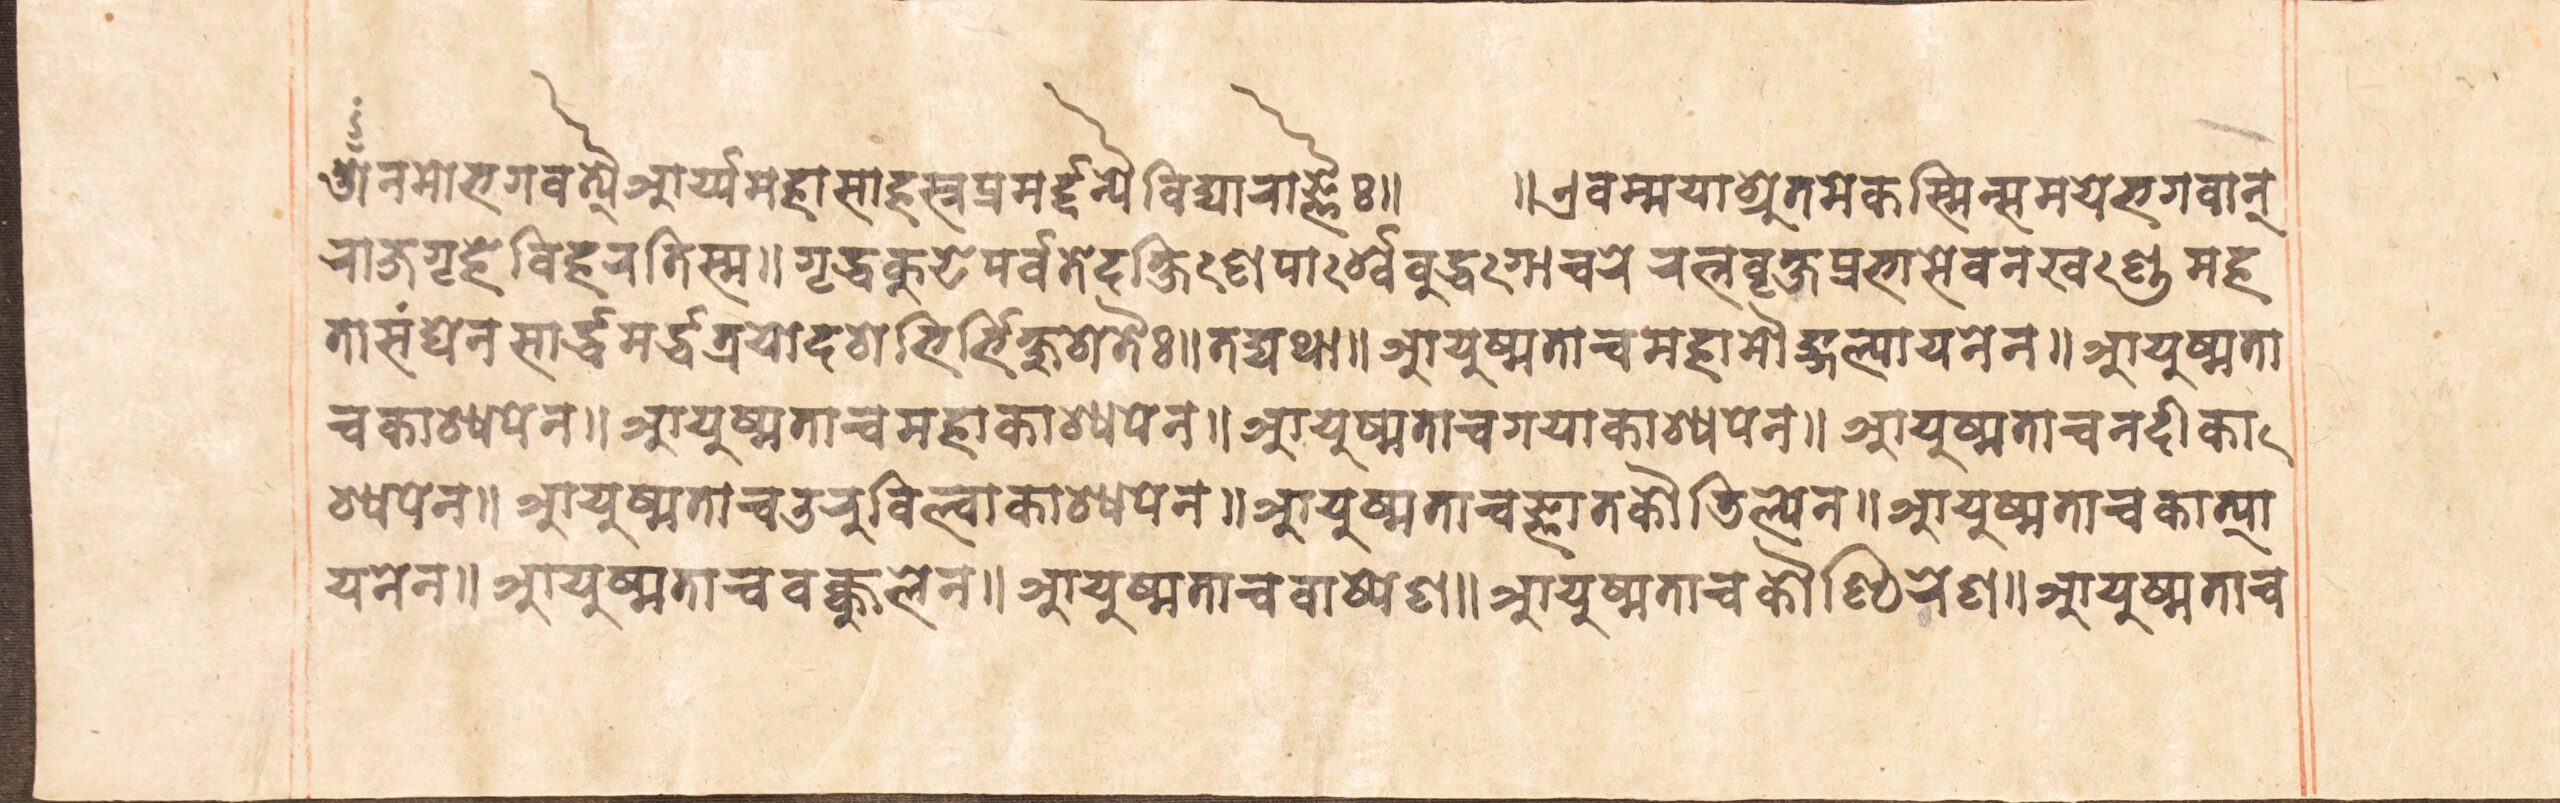 ॐ नमो भगवत्यै आर्य्यमहासाहस्रप्रमर्द्दन्यै विद्याराज्ञैः॥ ॥एवम्मया श्रुतमेकस्मिन्समये भगवान्
राजगृहे विहरतिस्म॥ गृद्ध्रकुटे पर्वते दक्षिणपार्श्वे बुद्धगोचरे रत्नवृक्षप्रभासे वनखण्डे मह
तासंघेन सार्द्धमर्द्धत्रयोदशभिर्भिक्षुशतैः॥ तद्यथा॥ आयुष्मता च महामौद्गल्यायनेन॥ आयुष्मता
च काश्यपेन॥ आयुष्मता च महाकाश्यपेन॥ आयुष्मता च गयाकाश्यपेन॥ आयुष्मता च नदीका
श्यपेन॥ आयुष्मता च उरुविल्वाकाश्यपेन॥ आयुष्मता च ज्ञातकौतिल्येन॥ आयुष्मता च कात्या
यनेन॥ आयुष्मता च वक्कुलेन॥ आयुष्मता च वाष्पेण॥ आयुष्मता च कौष्ठिरेण॥ आयुष्मता च